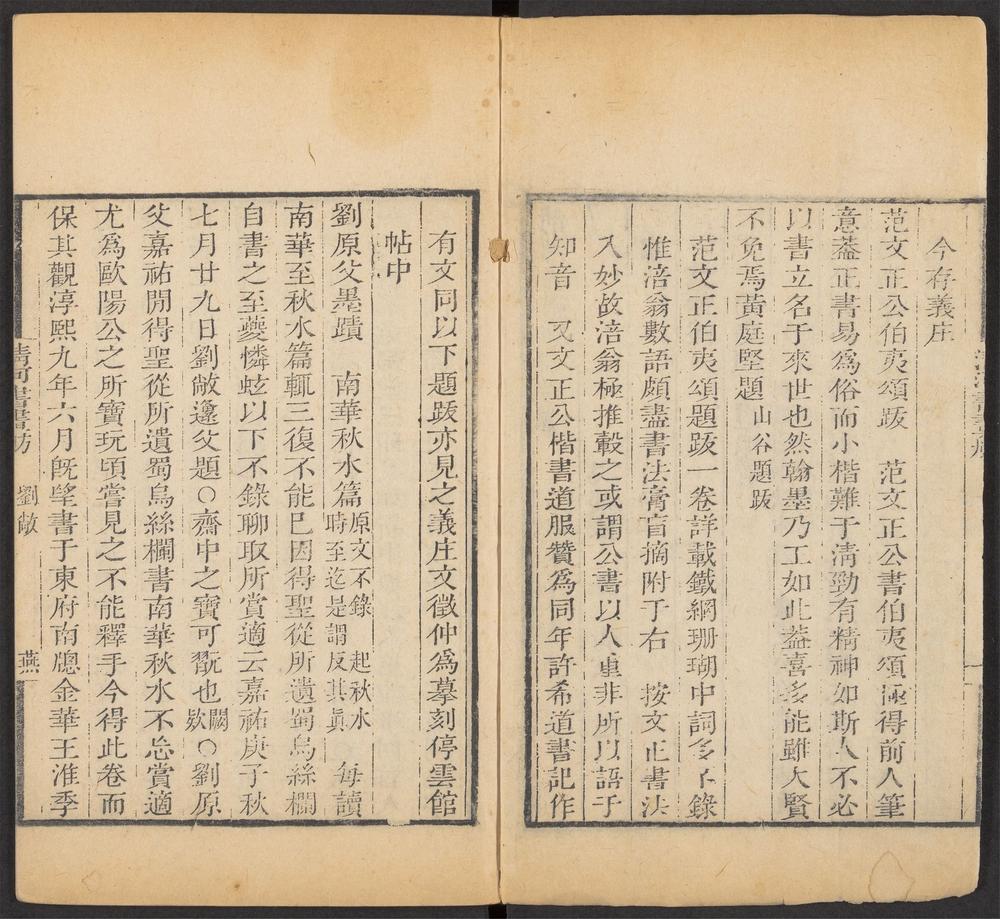 今存義庄
范文正公伯夷頌䟦　范文正公書伯夷頌極得前人筆
意葢正書易爲俗而小楷難于清勁有精神如斯人不必
以書立名于來世也然翰墨乃工如此葢喜多能雖大賢
不免焉黃庭堅題山谷題䟦
范文正伯夷頌題䟦一卷詳載鐵網珊瑚中詞多不錄
惟涪翁數語頗盡書法膏肓摘附于右　按文正書法
入妙故涪翁極推轂之或謂公書以人重非所以語于
知音　又文正公楷書道服贊爲同年許希道書記作
有文同以下題䟦亦見之義庄文徵仲爲摹刻停雲館
帖中
劉原父墨蹟　南華秋水篇原文不錄　起秋水
時至迄是謂反其眞　每讀
南華至秋水篇輒三復不能已因得聖從所遺蜀烏絲欄
自書之至夔憐蚿以下不錄聊取所賞適云嘉祐庚子秋
七月廿九日劉敞邍父題○齋中之寶可翫也闕
欵○劉原
父嘉祐開得聖從所遺蜀烏絲欄書南華秋水不忘賞適
尤爲歐陽公之所寶玩頃嘗見之不能釋手今得此卷而
保其觀淳熙九年六月既望書于東府南牕金華王淮季
清河書畫舫
劉敞
燕